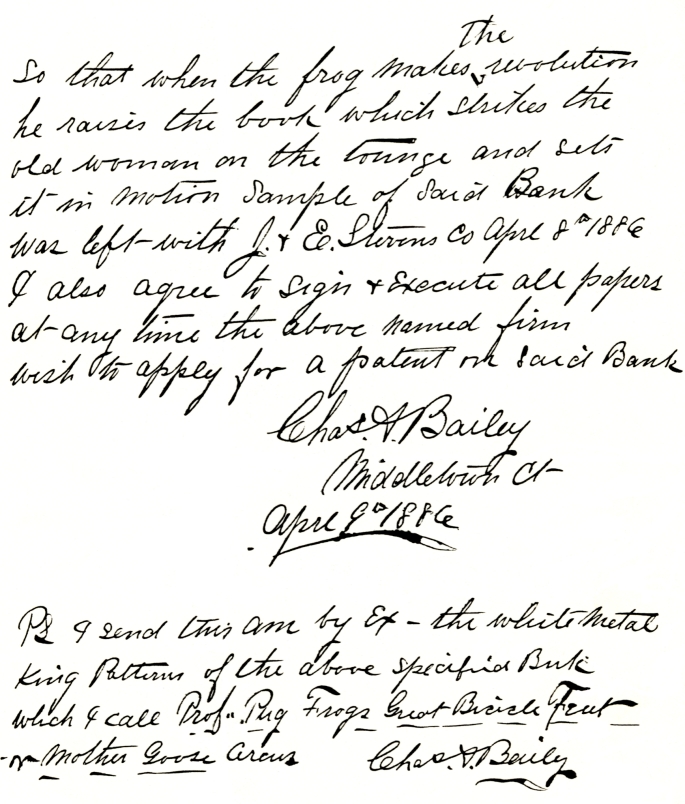 The
So that when the frog makes revolution
he raises the book which strikes the
old woman on the lounge and sets
it in motion Sample of Said Bank
was left with J. & E. Stevens Co Aprl 8th 1886
I also agree to sign & Execute all papers
at any time the above named firm
wish to apply for a patent on Said Bank
Chas. A. Bailey
Middletown Ct
Aprl 9th 1886
PS I send this am by Ex - the white metal
King Patterns of the above specified Bnk
which I call Prof. Pug Frogs Great Bicicle Feat
or Mother Goose Circus Chas. A. Baily